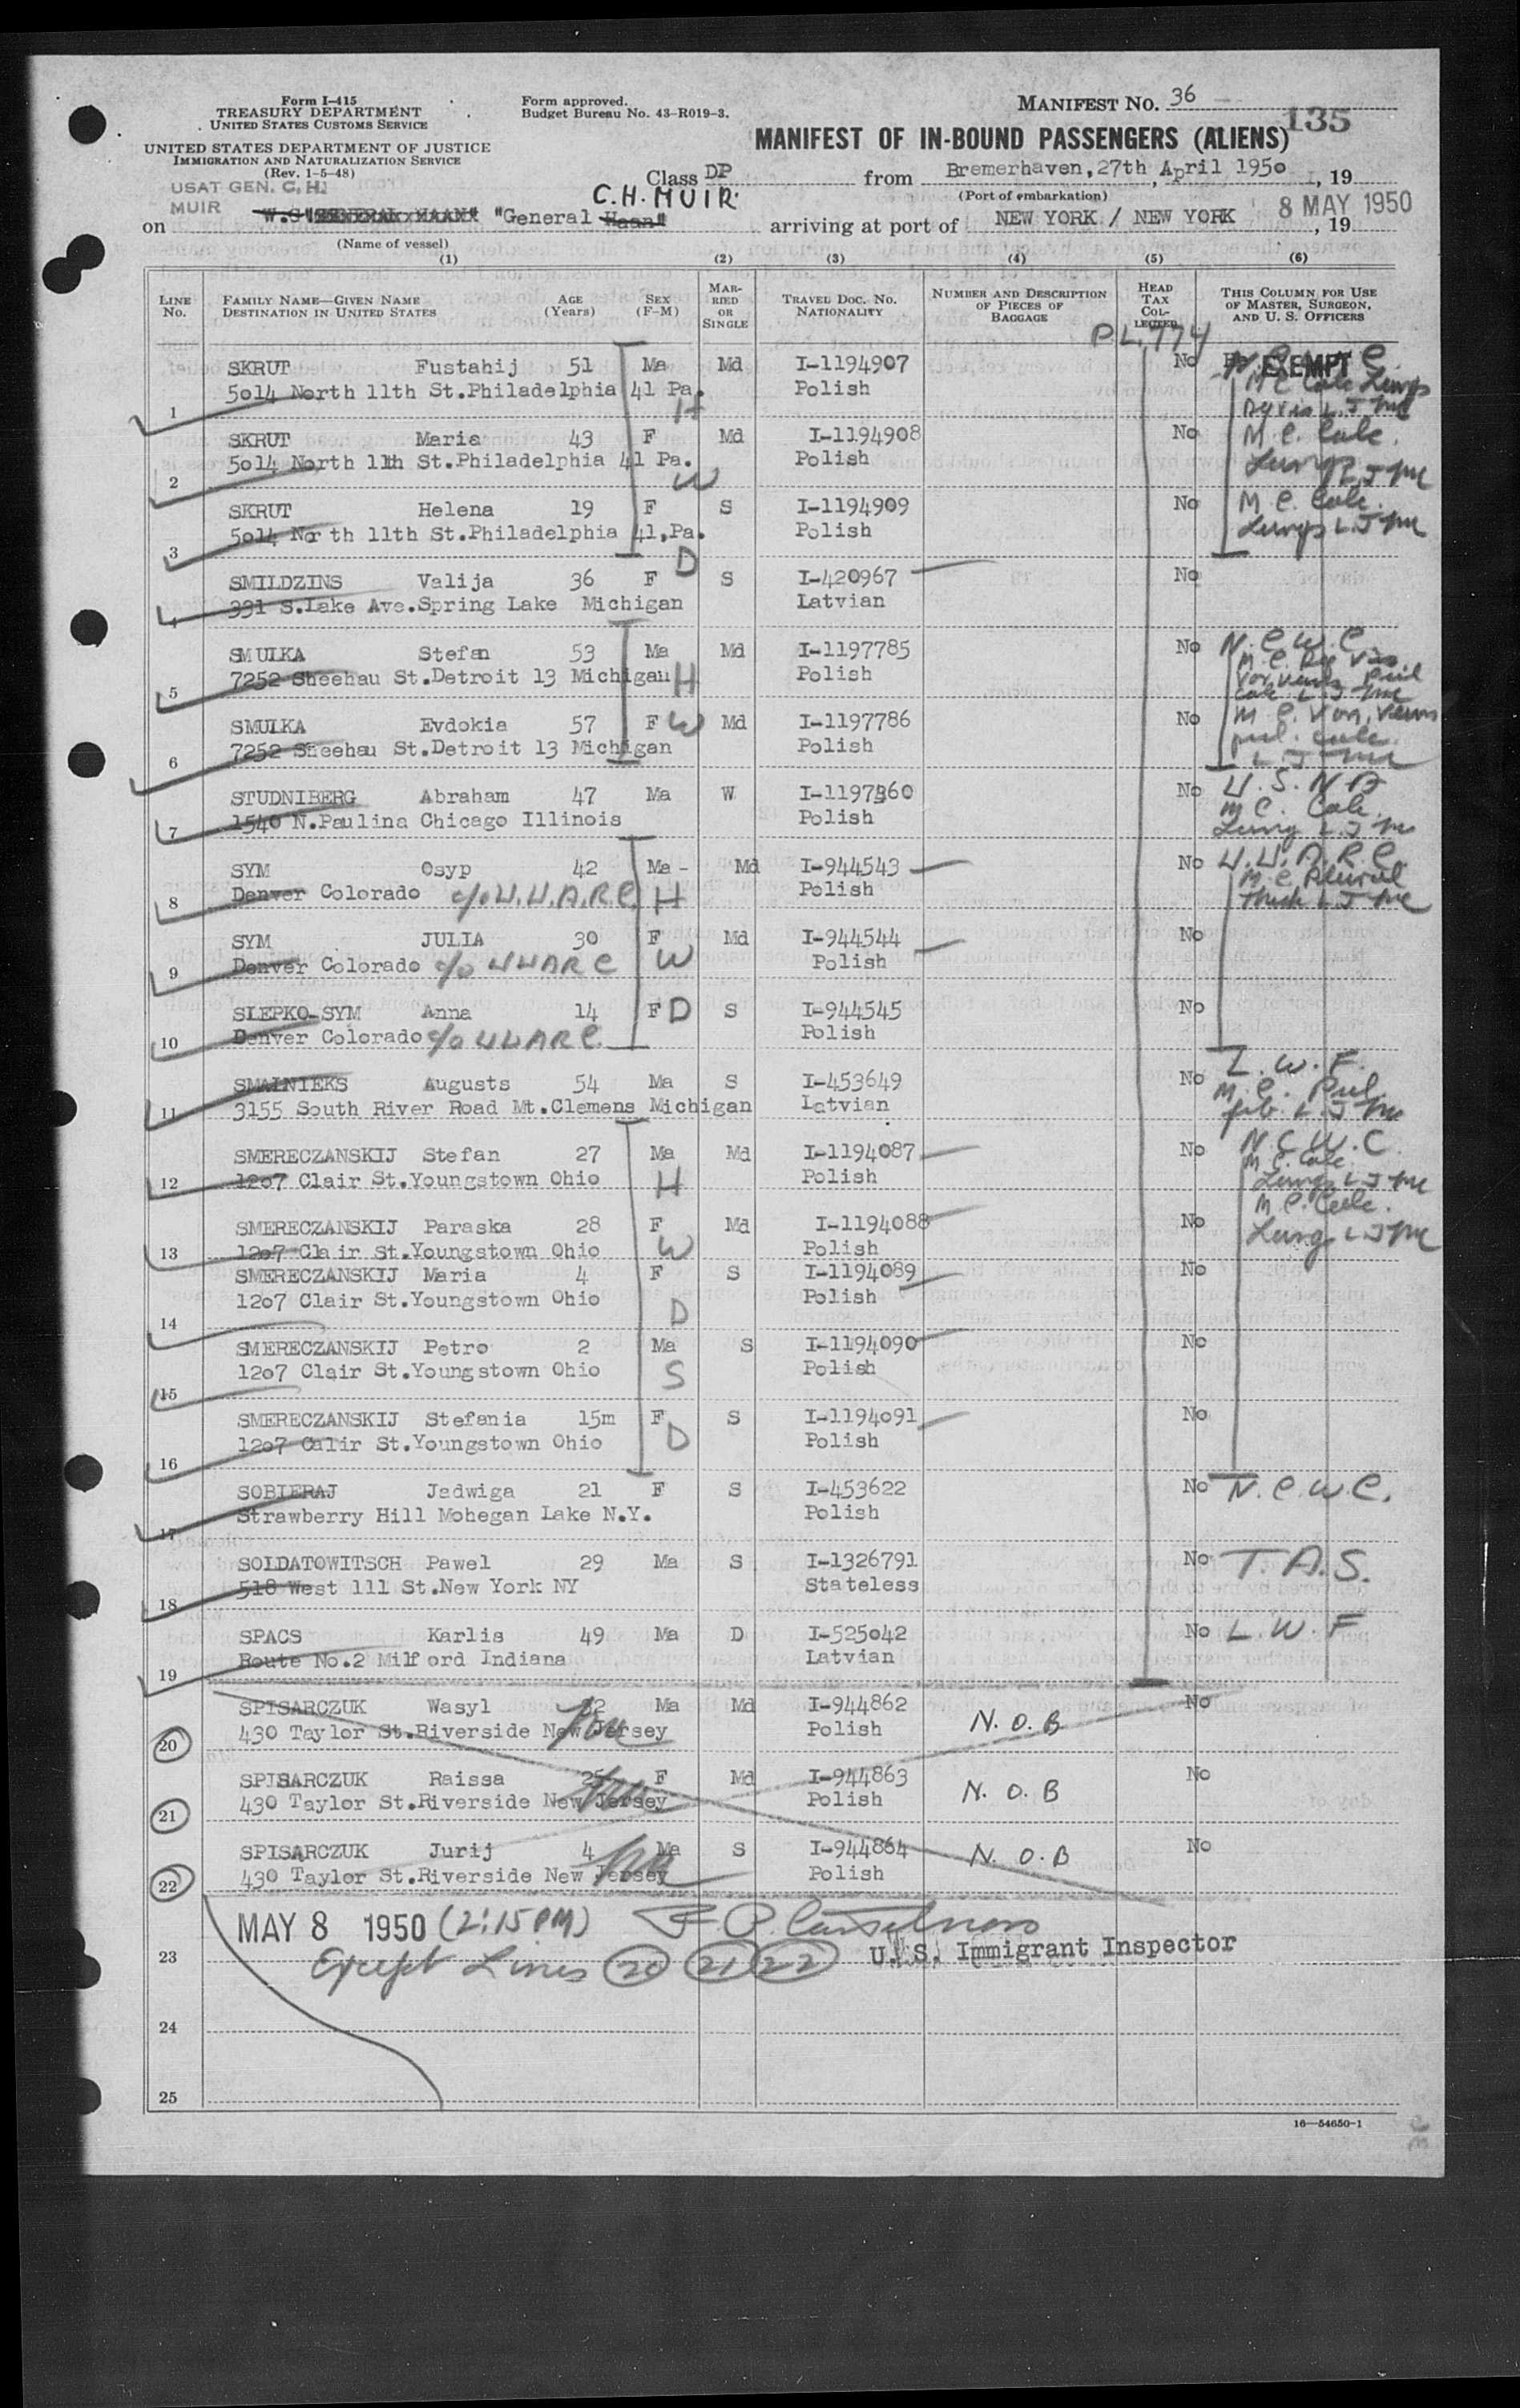 Form I-415
TREASURY DEPARTMENT
UNITED STATES CUSTOMS SERVICE
UNITED STATES DEPARTMENT OF JUSTICE
IMMIGRATION AND NATURALIZATION SERVICE
(Rev. 1-5-48)
Form approved.
Budget Bureau No. 43-R019-3.
MANIFEST NO. 36
135
MANIFEST OF IN-BOUND PASSENGERS (ALIENS)
Class DP from Bremerhaven,27th April 1950, 19
(Port of embarkation)
USAT GEN. C. H.
MUIR
C.H. MUIR.
on "General Haan" arriving at port of NEW YORK / NEW YORK 8 MAY 1950, 19
(Name of vessel)
(1) (2) (3) (4) (5) (6)
LINE No. FAMILY NAME—GIVEN NAME DESTINATION IN UNITED STATES AGE (Years) SEX (F-M) MARRIED OR SINGLE TRAVEL DOC. NO. NATIONALITY NUMBER AND DESCRIPTION OF PIECES OF BAGGAGE HEAD TAX COLLECTED THIS COLUMN FOR USE OF MASTER, SURGEON, AND U. S. OFFICERS
P.L. 774
SKRUT Fustahij 51 Ma Md I-1194907 No EXEMPT
1 5014 North 11th St.Philadelphia 41 Pa. H Polish M.C. Calc Lungs
SKRUT Maria 43 F Md I-1194908 No M.C. Calc.
2 5014 North 11th St.Philadelphia 41 Pa. W Polish Lungs L J
SKRUT Helena 19 F S I-1194909 No M C. Calc.
3 5014 North 11th St.Philadelphia 41,Pa. D Polish Lungs L.J
SMILDZINS Valija 36 F S I-420967 No
4 391 S.Lake Ave.Spring Lake Michigan Latvian
SMULKA Stefan 53 Ma Md I-1197785 No N.C.W.C.
5 7252 Sheehau St.Detroit 13 Michigan H Polish
SMULKA Evdokia 57 F W Md I-1197786 No
6 7252 Sheehau St.Detroit 13 Michigan Polish
STUDNIBERG Abraham 47 Ma W I-1197360 No U.S.N.A
7 1540 N.Paulina Chicago Illinois Polish M C. Calc. Lung L.J
SYM Osyp 42 Ma - Md I-944543 No U.U.A.R.C.
8 Denver Colorado c/o U.U.A.R.C. H Polish
SYM JULIA 30 F Md I-944544 No
9 Denver Colorado c/o UUARC W Polish
SLEPKO-SYM Anna 14 F D S I-944545 No
10 Denver Colorado c/o UUARC. Polish
SMALNIEKS Augusts 54 Ma S I-453649 No L.W.F.
11 3155 South River Road Mt.Clemens Michigan Latvian
SMERECZANSKIJ Stefan 27 Ma Md I-1194087 No N.C.W.C.
12 1207 Clair St.Youngstown Ohio H Polish M.C. Calc. Lungs L J
SMERECZANSKIJ Paraska 28 F Md I-1194088 No M.C. Calc.
13 1207 Clair St.Youngstown Ohio W Polish Lung L J
SMERECZANSKIJ Maria 4 F S I-1194089 No
14 1207 Clair St.Youngstown Ohio D Polish
SMERECZANSKIJ Petro 2 Ma S I-1194090 No
15 1207 Clair St.Youngstown Ohio S Polish
SMERECZANSKIJ Stefania 15m F S I-1194091 No
16 1207 Calir St.Youngstown Ohio D Polish
SOBIERAJ Jadwiga 21 F S I-453622 No N.C.W.C.
17 Strawberry Hill Mohegan Lake N.Y. Polish
SOLDATOWITSCH Pawel 29 Ma S I-1326791 No T.A.S.
18 518 West 111 St.New York NY Stateless
SPACS Karlis 49 Ma D I-525042 No L.W.F
19 Route No.2 Milford Indiana Latvian
SPISARCZUK Wasyl Ma Md I-944862 No
20 430 Taylor St.Riverside New Jersey Polish N.O.B
SPISARCZUK Raissa 25 F Md I-944863 No
21 430 Taylor St.Riverside New Jersey Polish N.O.B
SPISARCZUK Jurij 4 Ma S I-944864 No
22 430 Taylor St.Riverside New Jersey Polish N.O.B
MAY 8 1950 (2:15 PM)
23 Except Lines 20 21 22 U. S. Immigrant Inspector
24
25
16—54650-1